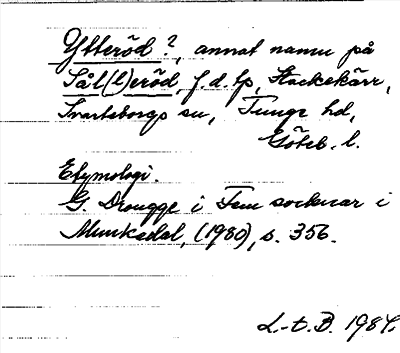 Ytteröd?, annat namn på
Sål(l)eröd, f.d. lp, Stackekärr,
Svarteborgs sn, Tunge hd,
Göteb. l.
Etymologi.
G. Drougge i Fem socknar i
Munkedal, (1980), s. 356.
L-t.B. 1984.